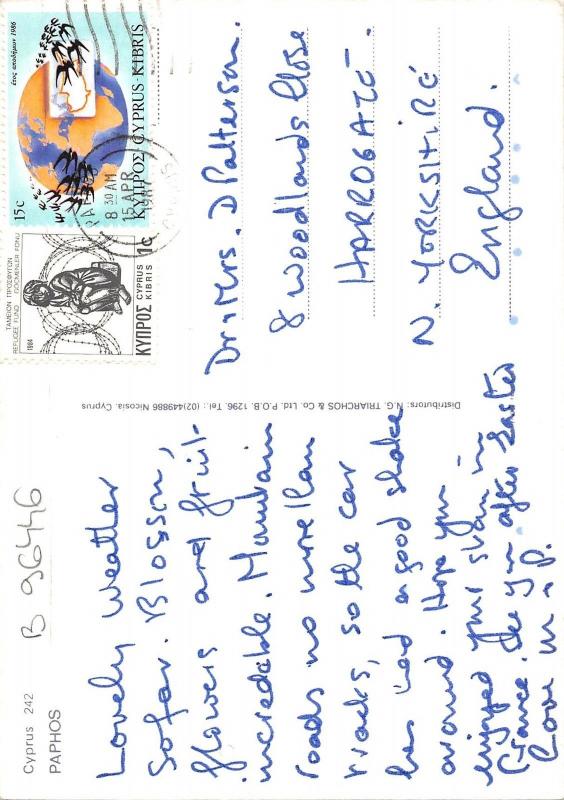 Cyprus 242
PAPHOS
B 96446
Lovely weather
so far. Blossom,
flowers and fruit -
incredible. Mountain
roads no more than
tracks, so the car
has had a good shake
around. Hope you
enjoyed your stay in
France. See you after Easter
Love M & P.
Distributors: N.G. TRIARCHOS & Co. Ltd. P.O.B. 1296. Tel.: (02)449886 Nicosia. Cyprus
ΤΑΜΕΙΟΝ ΠΡΟΣΦΥΓΩΝ
REFUGEE FUND GÖÇMENLER FONU
1984
ΚΥΠΡΟΣ CYPRUS KIBRIS 1c
έτος αποδήμων 1986
15c
ΚΥΠΡΟΣ-CYPRUS-KIBRIS
8 30 AM
15 APR
Dr & Mrs. D Patterson.
8 Woodlands Close
HARROGATE.
N. YORKSHIRE
England.